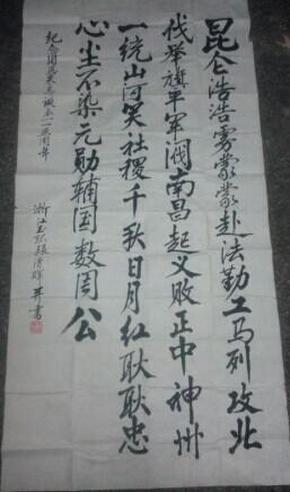 昆仑浩浩雾蒙蒙赴法勤工马列攻北
伐举旗平军阀南昌起义败正中神州
一统山河笑社稷千秋日月红耿耿忠
心尘不染元勋辅国数周公
纪念周恩来总诞辰一一周年
浙江玉环 并书